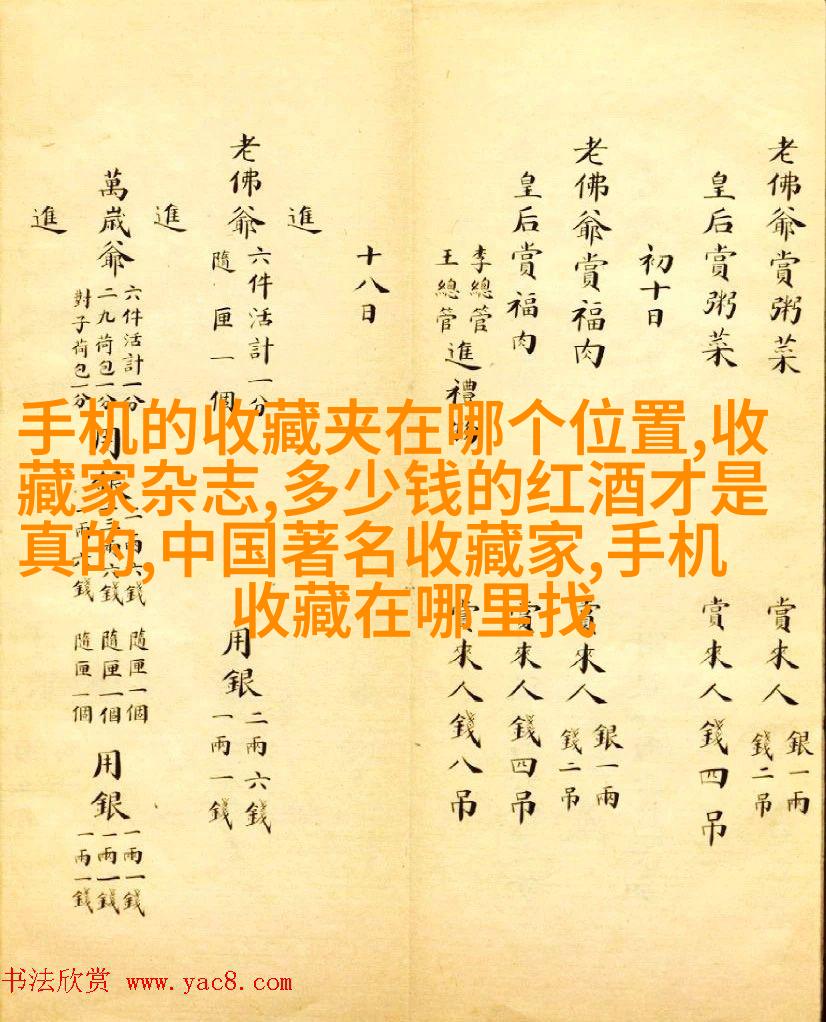 老佛爺賞粥菜 賞來人 銀一兩 錢二吊
皇后賞粥菜 賞來人錢四吊
初十日
老佛爺賞福肉 賞來人 銀一兩 錢二吊
皇后賞福肉 賞來人錢四吊
李總管
王總管
進禮 賞來人錢八吊
十八日
進
老佛爺 六件活計一分
隨匣一個 用銀 二兩六錢
一兩一錢
進
萬歲爺 六件活計一分
二九荷包一分
對子荷包一分
用銀
隨匣一個
隨匣一個
隨匣一個
用銀 一兩一錢
一兩一錢
一兩一錢
進
手机的收藏夹在哪个位置,收
藏家杂志,多少钱的红酒才是
真的,中国著名收藏家,手机
收藏在哪里找
书法欣赏 www.yac8.com